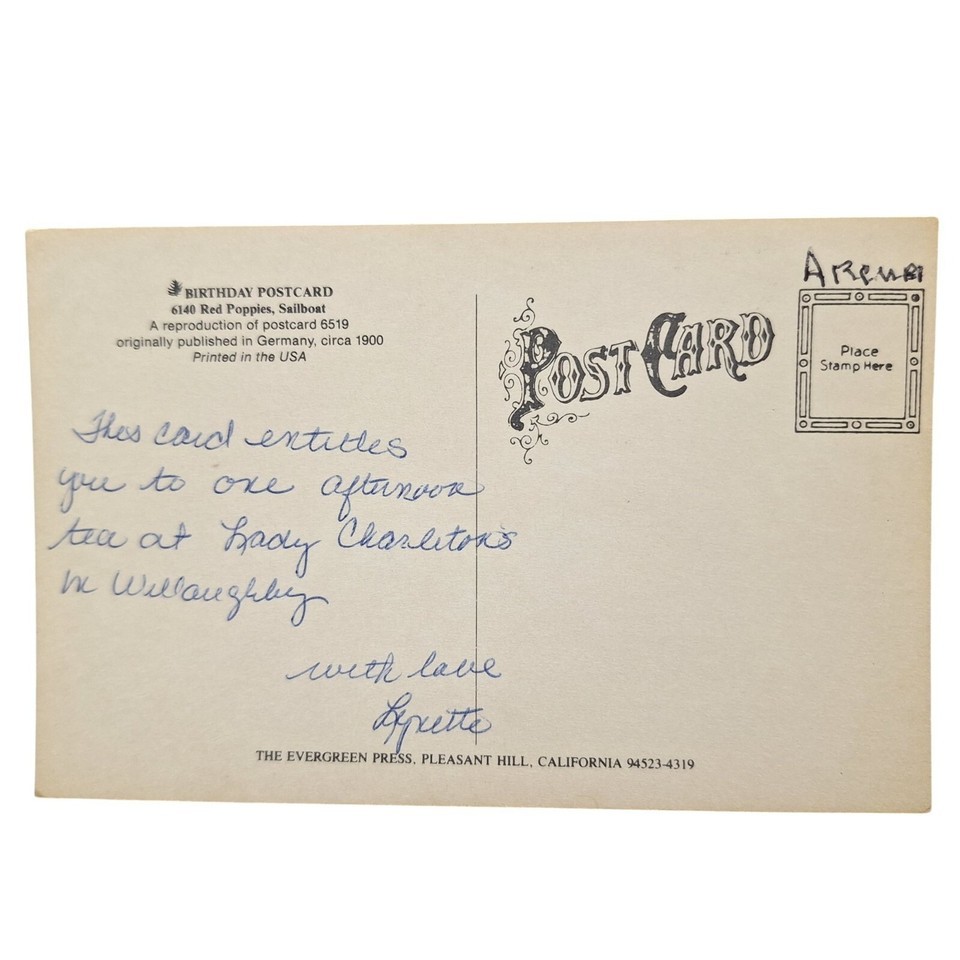 BIRTHDAY POSTCARD
6140 Red Poppies, Sailboat
A reproduction of postcard 6519
originally published in Germany, circa 1900
Printed in the USA
POST CARD
Place
Stamp Here
This card entitles
you to one afternoon
tea at Lady Charleton's
in Willaughby
with love
Lynette
THE EVERGREEN PRESS, PLEASANT HILL, CALIFORNIA 94523-4319